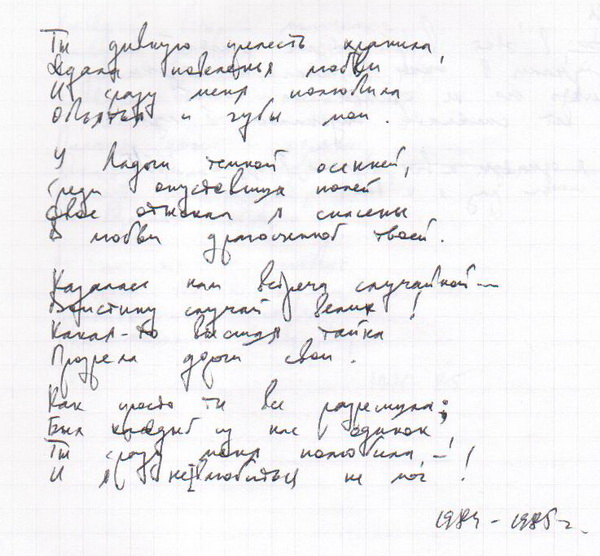 Ты дивную прелесть хранила,
Ждала повеления любви
И сразу меня полюбила
Объятья и губы мои.
У Ладоги темной осенней,
Среди опустевших полей
Свое отыскал я спасенье
В любви драгоценной твоей.
Казалась нам встреча случайной —
Воистину случай велик!
Какая-то высшая тайна
Прозрела дороги свои.
Как просто ты все разрешила:
Был каждый из нас одинок,
Ты сразу меня полюбила, —
И я не влюбиться не мог!
1984 - 1985 г.